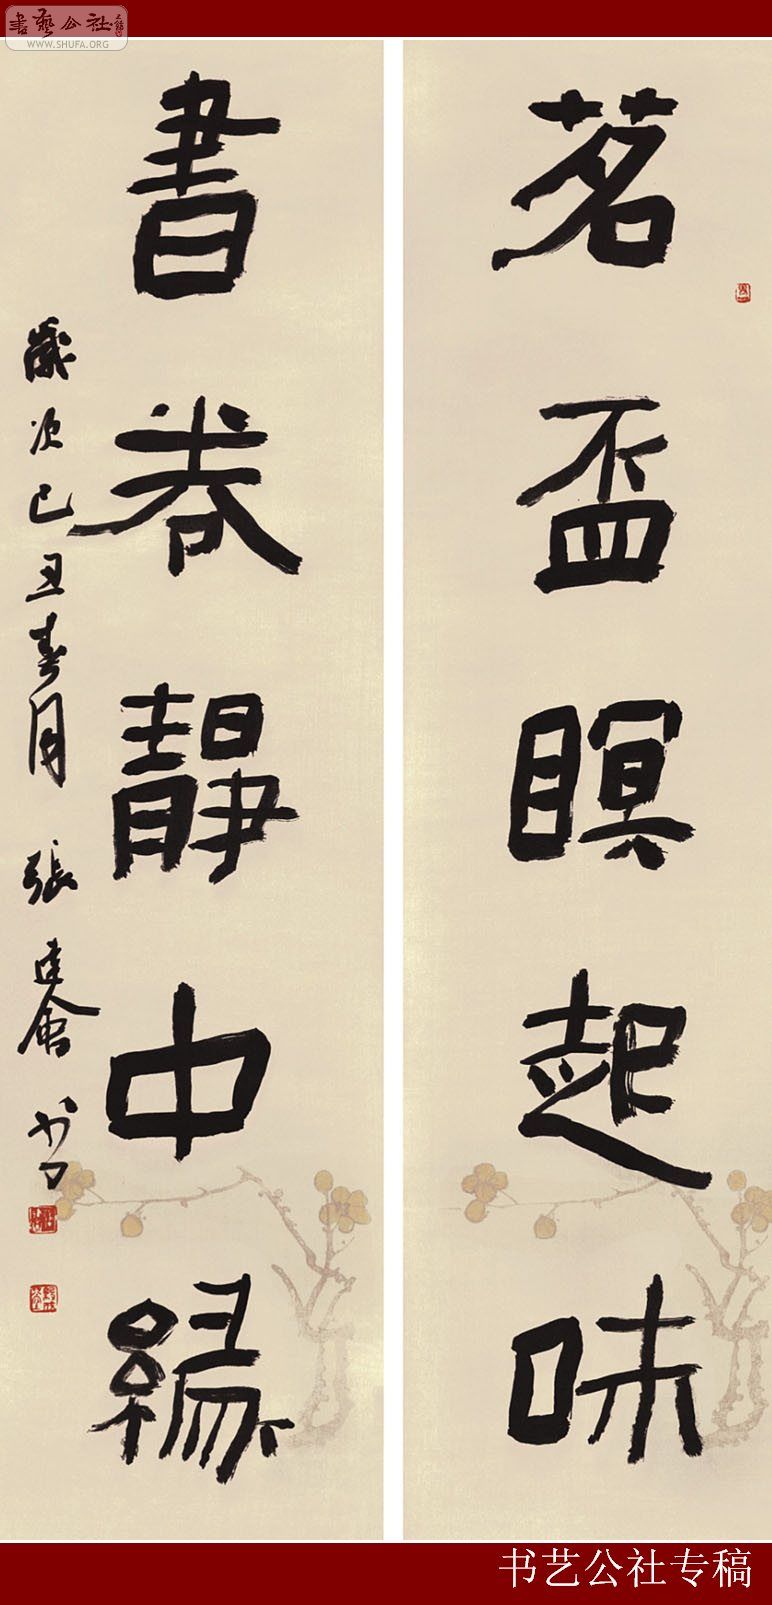 書艺公社
WWW.SHUFA.ORG
茗盃瞑起味
書卷靜中緣
歲次己丑春月 張建會書
书艺公社专稿